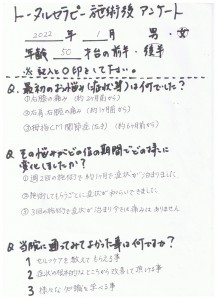 トータルセラピー施術後 アンケート
2022年 1月 男・女
年齢 50 才台の前半・後半
※ 記入と〇印をして下さい。
Q. 最初のお悩み(症状等)は何でした?
①右膝の痛み (約2ヶ月前から)
②右肩右腕の痛み (約1ヶ月前から)
③母指CM関節症(左手) (約6ヶ月前から)
Q その悩みがどの位の期間でどの様に
変化しましたか?
①週2回の施術で約1ヶ月で症状が治まりました
②施術してもらうごとに症状が和らいできました
③3回の施術で症状が治まり今では痛みはありません
Q 当院に通ってみてよかった事は何ですか?
1 セルフケアを教えてもらえる事
2 症状の根本的なところから改善して頂ける事
3 様々な知識を学べる事